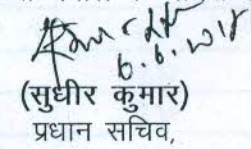 6.6.2018
(सुधीर कुमार)
प्रधान सचिव,